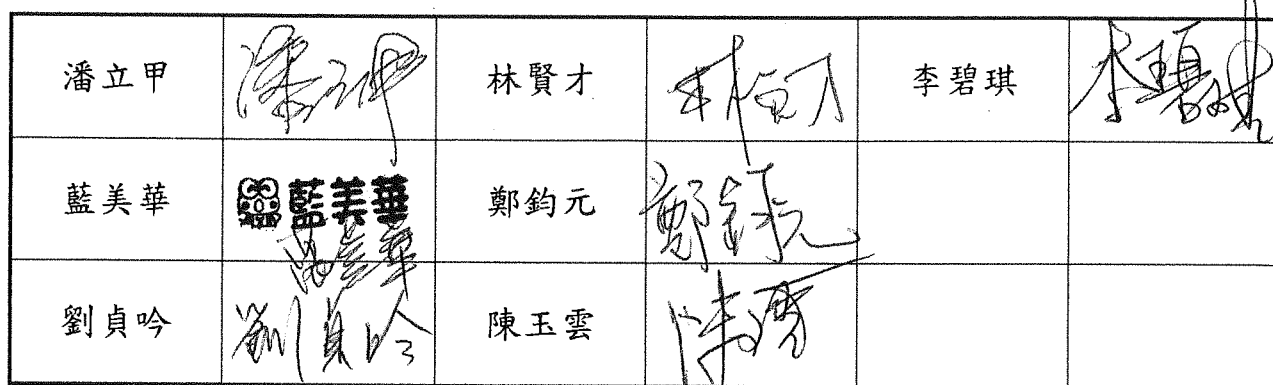 潘立甲 潘立甲 林賢才 林賢才 李碧琪 李碧琪
藍美華 藍美華 鄭鈞元 鄭鈞元
劉貞吟 劉貞吟 陳玉雲